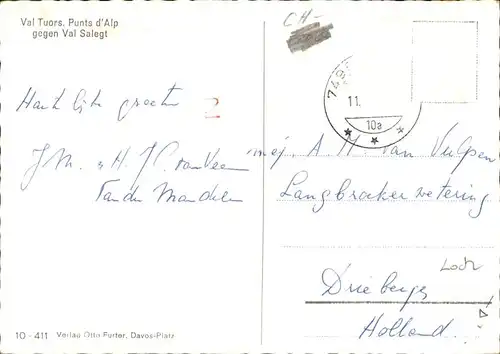 Val Tuors, Punts d'Alp
gegen Val Salegt
CH-
11.
10a
2
Hartelijke groeten
J.M. H.J.C. van Veen
van der Mandele
mej. A. M. van Vulpen
Langbroekerwetering
Loch
Driebergen
Holland
10 - 411 Verlag Otto Furter, Davos-Platz